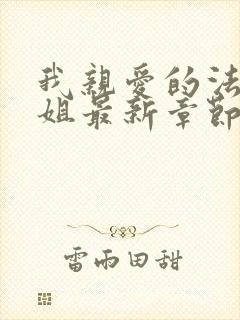 我親愛的法
姐最新章節
雷雨田甜